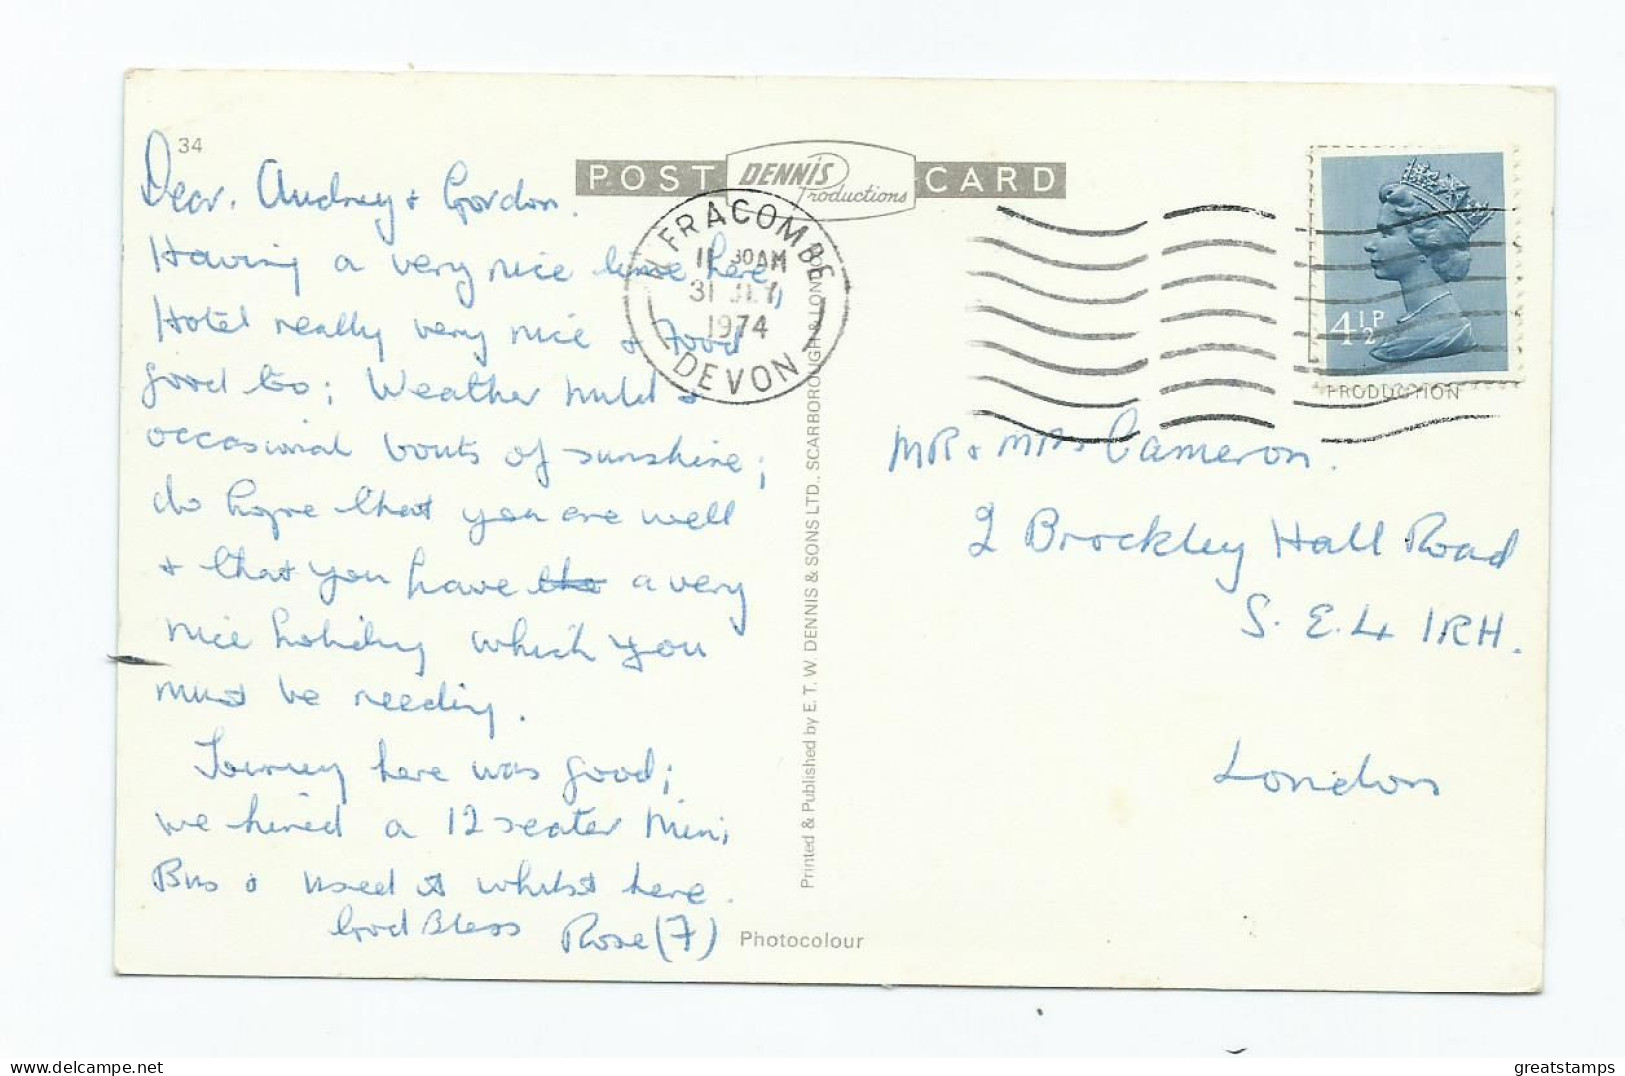 34
POST DENNIS Productions CARD
ILFRACOMBE
11 30AM
31 JLY
1974
DEVON
4½P
PRODUCTION
Dear. Audrey + Gordon.
Having a very nice time here,
Hotel really very nice + food
good to; Weather mild +
occasional bouts of sunshine;
do hope that you are well
+ that you have the a very
nice holiday which you
must be needing.
Journey here was good;
we hired a 12 seater Mini
Bus + used it whilst here.
God Bless Rose (7)
Printed & Published by E. T. W. DENNIS & SONS LTD., SCARBOROUGH & LONDON
MR + MRs Cameron.
2 Brockley Hall Road
S. E. 4 1RH.
London
Photocolour
greatstamps